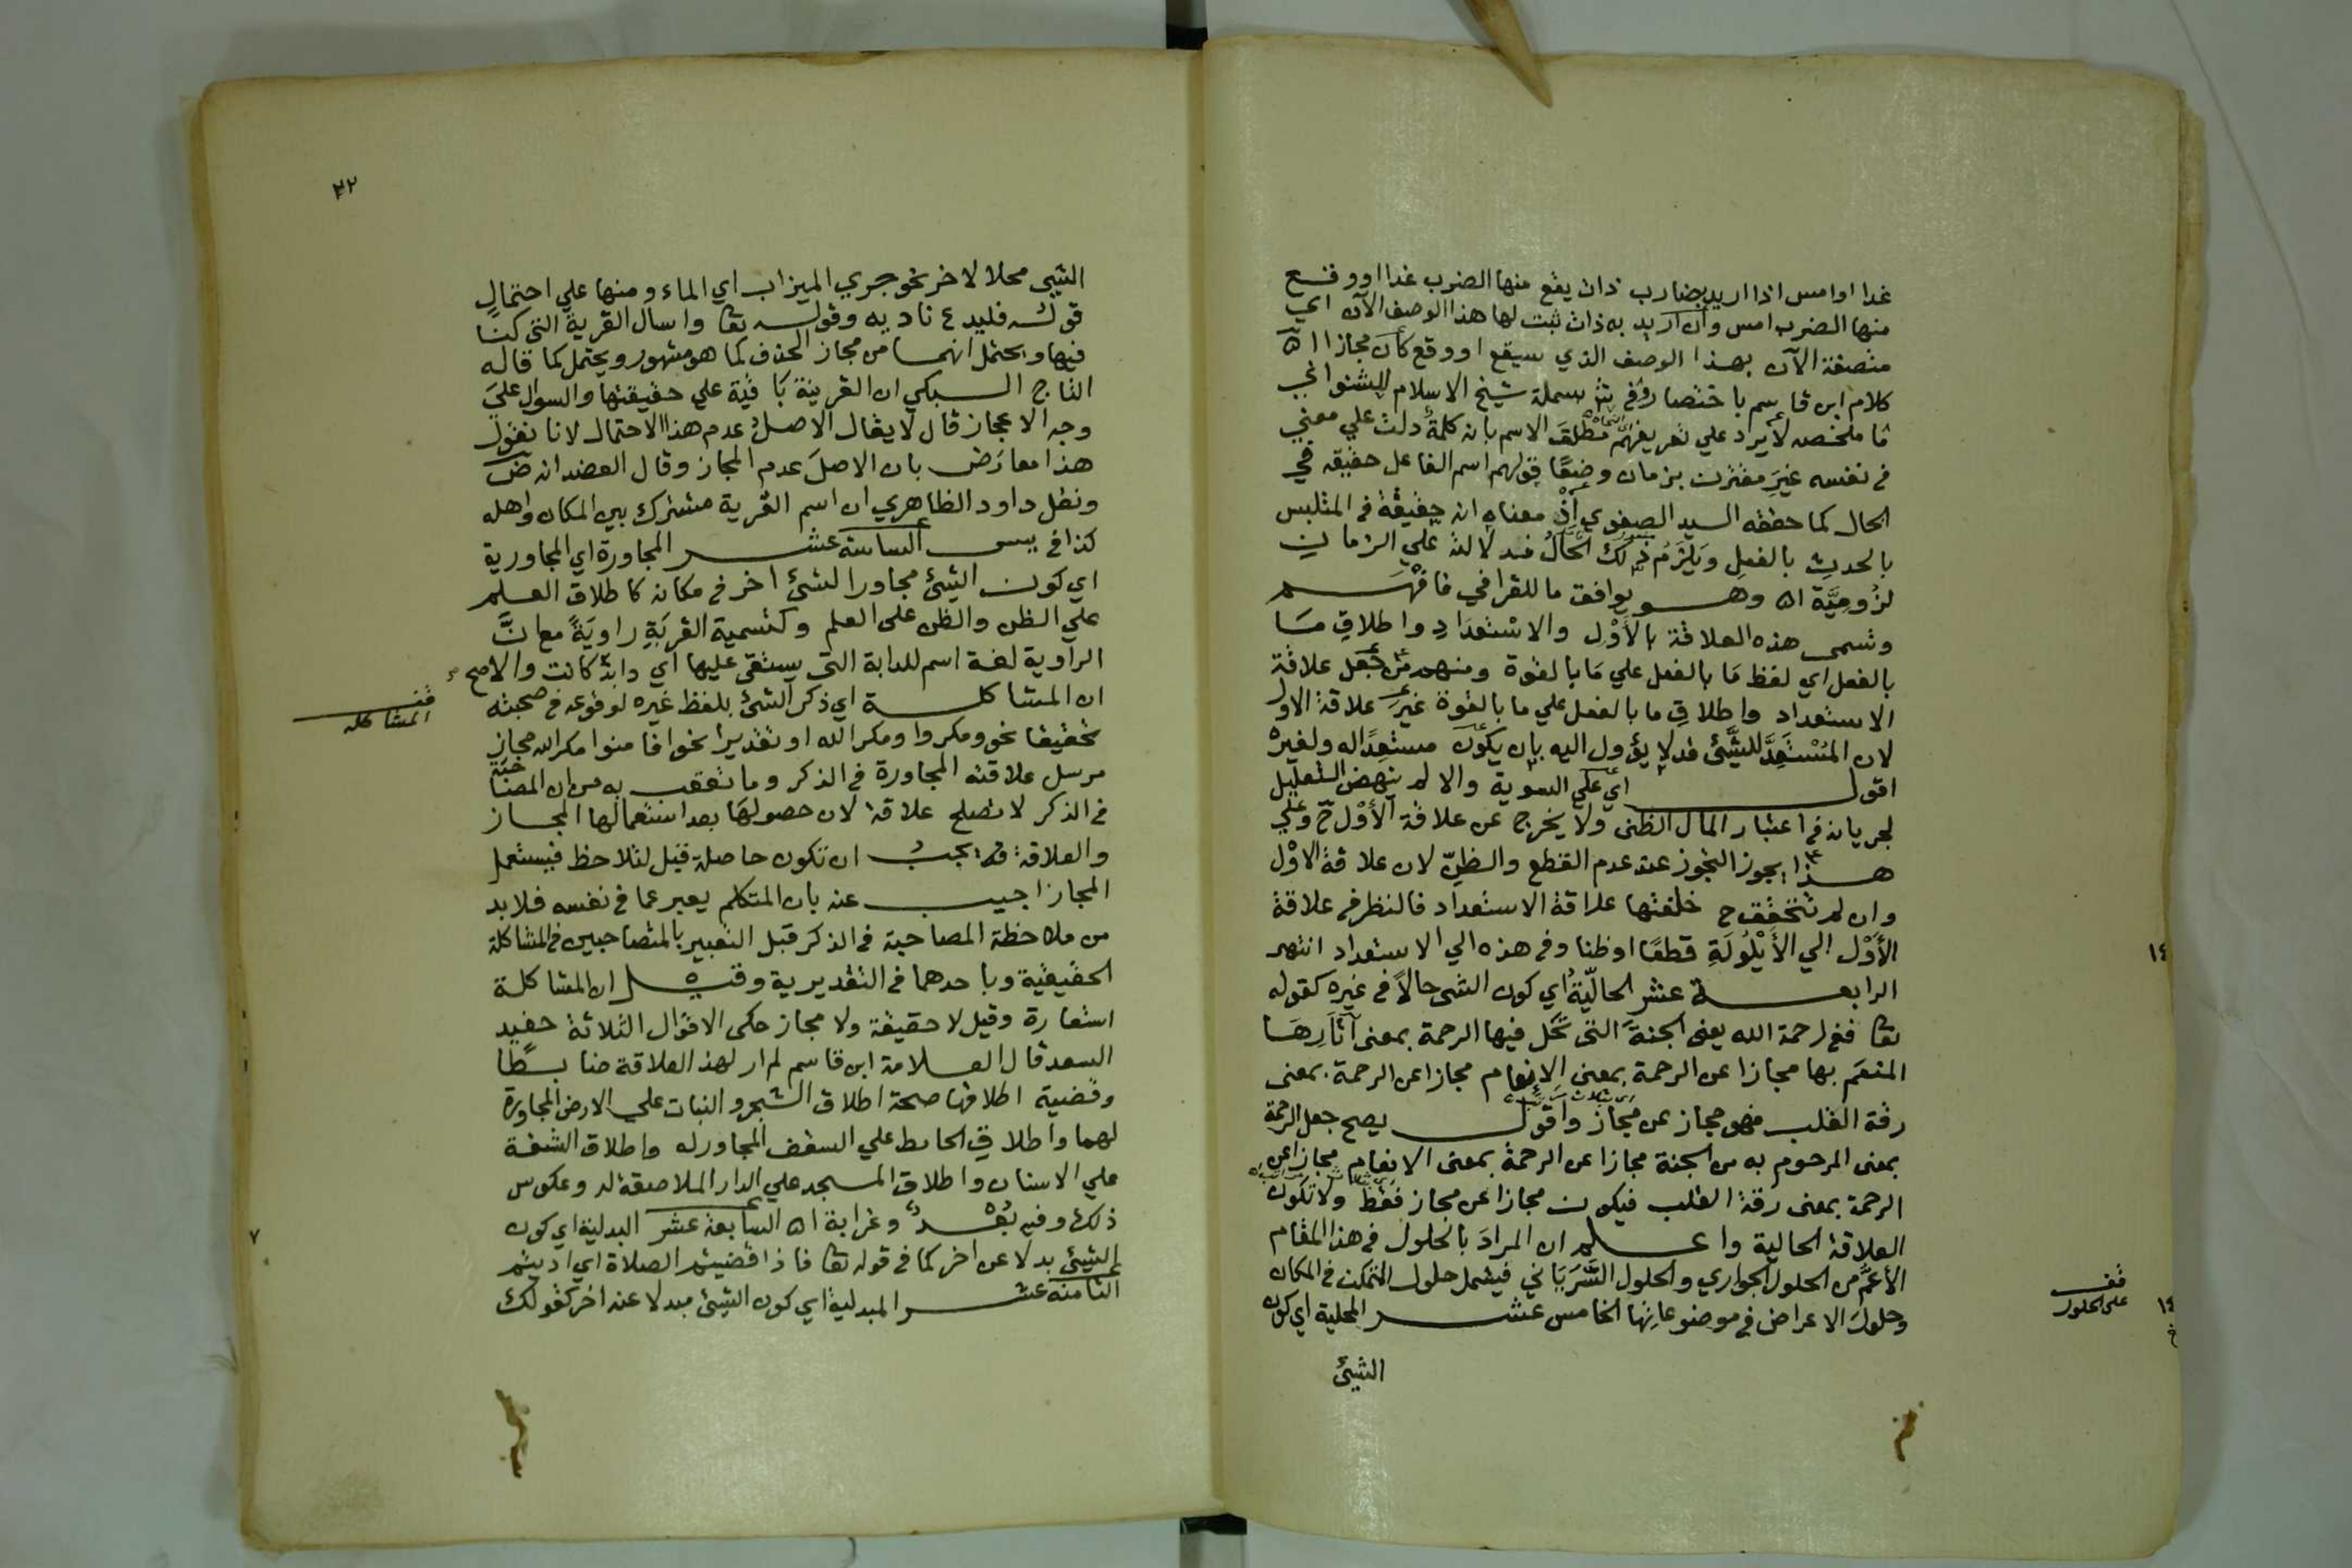 غدا او امس اذا اريد بضارب ذات يقع منها الضرب غدا او وقع
منها الضرب امس وان اريد به ذات ثبت لها هذا الوصف الآن اي
متصفة الآن بهذا الوصف الذي سيقع او وقع كان مجازا اه
كلام ابن قاسم باختصار وفي بسملة شيخ الاسلام للشنواني
ما ملخصه لا يرد علي تعريفهم مطلق الاسم بانه كلمة دلت علي معني
في نفسه غير مقترن بزمان وضعا قولهم اسم الفاعل حقيقه في
الحال كما حققه السيد الصفوي اذ معناه انه حقيقة في المتلبس
بالحدث بالفعل ويلزم ذلك الحال فدلالته علي الزمان
لزومية اه وهو يوافق ما للقرافي فافهم
وتسمي هذه العلاقة بالأول والاستعداد واطلاق ما
بالفعل اي لفظ ما بالفعل علي ما بالقوة ومنهم من جعل علاقة
الاستعداد واطلاق ما بالفعل علي ما بالقوة غير علاقة الاول
لان المستعد للشئ قد لا يؤول اليه بان يكون مستعدا له ولغيره
اقول اي علي السوية والا لم ينهض التعليل
لجريانه في اعتبار المآل الظني ولا يخرج عن علاقة الأول ح وعلي
هذا يجوز التجوز عند عدم القطع والظن لان علاقة الاول
وان لم تتحقق ح خلفتها علاقة الاستعداد فالنظر في علاقة
الأول الي الأيلولة قطعا او ظنا وفي هذه الي الاستعداد انتهى
الرابعة عشر الحالية اي كون الشي حالا في غيره كقوله
تعا ففي رحمة الله يعني الجنة التي تحل فيها الرحمة بمعني آثارها
المنعم بها مجازا عن الرحمة بمعني الانعام مجازا عن الرحمة بمعني
رقة القلب فهو مجاز عن مجاز واقول يصح جعل الرحمة
بمعني المرحوم به من الجنة مجازا عن الرحمة بمعني الانعام مجازا عن
الرحمة بمعني رقة القلب فيكون مجازا عن مجاز فقط ولا تكون
العلاقة الحالية واعلم ان المراد بالحلول في هذا المقام
الأعم من الحلول الجواري والحلول السرياني فيشمل حلول المتمكن في المكان
وحلول الاعراض في موضوعاتها الخامس عشر المحلية اي كون
الشئ
١٤
قف
على الحلول
٣٢
الشي محلا لاخر نحو جري الميزاب اي الماء ومنها علي احتمال
قوله فليدع ناديه وقوله تعا واسال القرية التي كنا
فيها ويحتمل انهما من مجاز الحذف كما هو مشهور ويحتمل كما قاله
التاج السبكي ان القرينة باقية علي حقيقتها والسوال علي
وجه الاعجاز قال لا يقال الاصل عدم هذا الاحتمال لانا نقول
هذا معارض بان الاصل عدم المجاز وقال العضد انه ض
ونقل داود الظاهري ان اسم القرية مشترك بين المكان واهله
كذا في يس السادسة عشر المجاورة اي المجاورية
اي كون الشئ مجاورا لشئ اخر في مكانه كاطلاق العلم
علي الظن والظن علي العلم وكتسمية القربة راوية مع ان
الراوية لغة اسم للدابة التي يستقي عليها اي دابة كانت والاصح
ان المشاكلة اي ذكر الشئ بلفظ غيره لوقوعه في صحبته
تحقيقا نحو ومكروا ومكر الله او تقديرا نحو افامنوا مكر الله مجاز
مرسل علاقته المجاورة في الذكر وما تعقب به من ان المصاحبة
في الذكر لا تصلح علاقة لان حصولها بعد استعمالها المجاز
والعلاقة يجب ان تكون حاصلة قبل لتلاحظ فيستعمل
المجاز اجيب عنه بان المتكلم يعبر عما في نفسه فلا بد
من ملاحظة المصاحبة في الذكر قبل التعبير بالمتصاحبين في المشاكلة
الحقيقية وباحدهما في التقديرية وقيل ان المشاكلة
استعارة وقيل لا حقيقة ولا مجاز حكى الاقوال الثلاثة حفيد
السعد قال العلامة ابن قاسم لم ار لهذ العلاقة ضابطا
وقضية اطلاقها صحة اطلاق الشجر والنبات علي الارض المجاورة
لهما واطلاق الحائط علي السقف المجاور له واطلاق الشفة
علي الاسنان واطلاق المسجد علي الدار الملاصقة له وعكوس
ذلك وفيه بعد وغرابة اه السابعة عشر البدلية اي كون
الشئ بدلا عن اخر كما في قوله تعا فاذا قضيتم الصلاة اي اديتم
الثامنة عشر المبدلية اي كون الشئ مبدلا عنه اخر كقولك
قف
المشاكله
٧